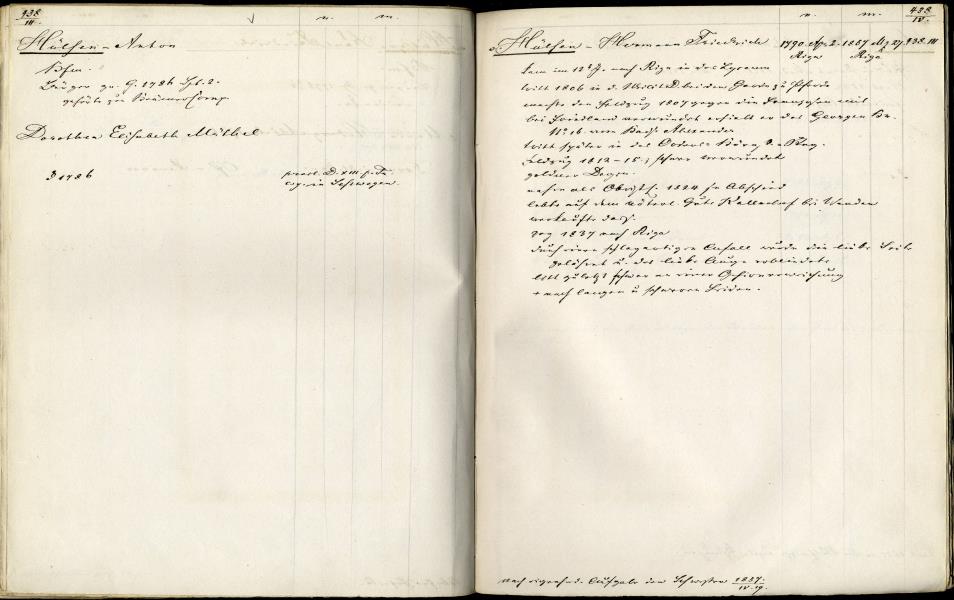 438.
III.
n. m.
Hülsen - Anton
Kfm.
Bürger gr. G. 1786 Fbr. 2.
gehörte zur Compp.
Dorothea Elisabeth Müthel
1786 procl. D. XIII p. Tr.
cop. in Sesswegen.
438.
IV.
n. m.
Hülsen - Hermann Friedrich 1790 Apr. 2. 1857 Mz. 27. 438. III
Riga Riga
kam im 12t J. nach Riga in das Lyceum
tritt 1806 in d. Milit. D. bei den Garde zu Pferde
machte den Feldzug 1807 gegen die Franzosen mit
bei Friedland verwundet erhielt er das Georgen Kr.
No 16 vom Kaiser Alexander
tritt später in das Ordens Kür. Reg.
Feldzug 1812-15; schwer verwundet
goldener Degen.
nahm als Obrist 1824 s. Abschied
lebte auf dem Gute Kallenhof bei Wenden
verkaufte dass.
zog 1837 nach Riga
durch einen schlagartigen Anfall wurde die linke Seite
gelähmt u. das linke Auge erblindete
litt zuletzt schwer an einer Gehirnerweichung
+ nach langen u schweren Leiden.
nach eigenhd. Aufgabe den Schwester 1857.
IV. 19.